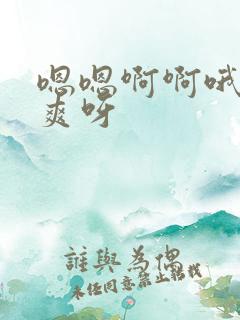 嗯嗯啊啊哦
爽呀
誰與為偶
未经同意禁止转载